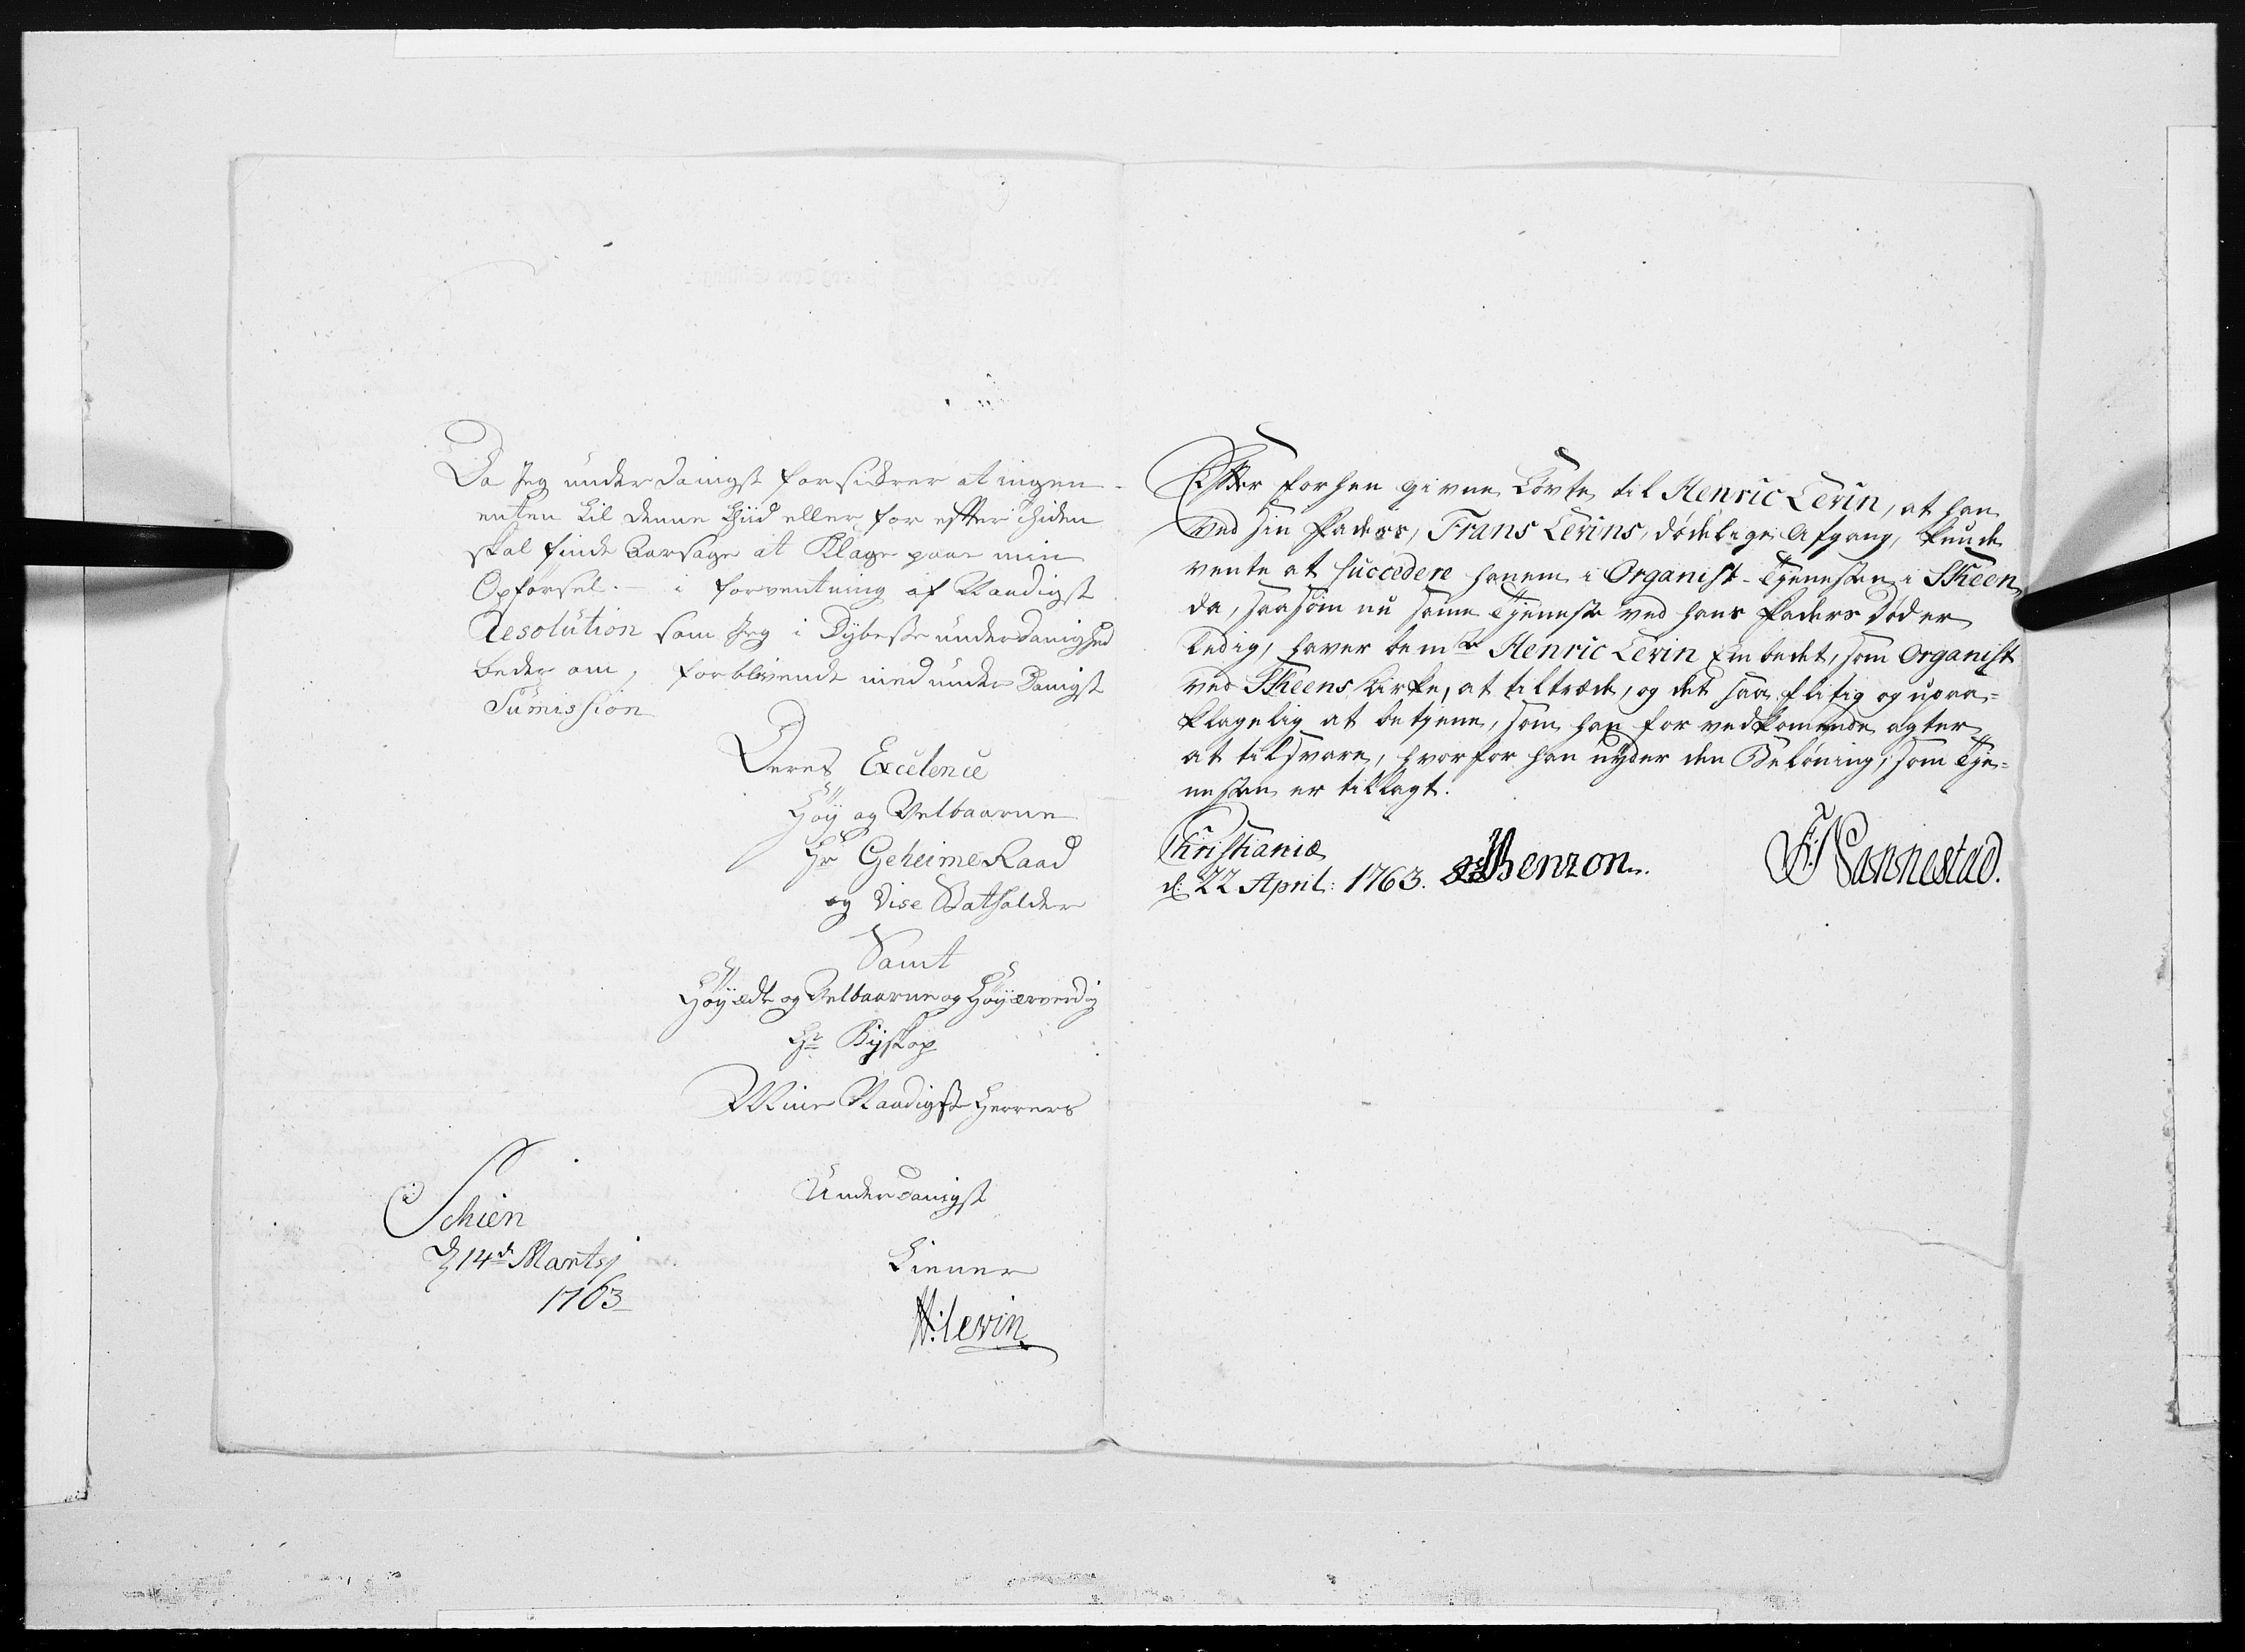 Da Jeg underdanigst forsickrer at ingen
enten til denne Thiid eller for effterthiden
skal finde Aarsage at Klage paae min
Opførsel. i forventning af Naadigst
Resolution som Jeg i Dybeste underdanighed
beder om, forblivende med under Danigst
Sumission
Deres Excelence
Høy og Velbaarne
Hr Geheime Raad
og Vise Statholder
Samt
Høyædle og Velbaarne og Høyærverdig
Hr Byskop
Mine Naadigste Herrers
Underdanigst
Schien
d 14de Martsj
1763
Tiener
H: Levin
Efter forhen givne Løvte til Henric Levin, at han
ved sin Faders, Frans Levins, dødelige Afgang, kunde
vente at succedere hanem i Organist-Tjenesten i Skeen
da, saasom nu samme Tjeneste ved hans Faders Død er
ledig, haver bemte Henric Levin Embedet, som Organist
ved Skeens Kirke, at tiltræde, og det saa flitig og upaa-
klagelig at betjene, som han for vedkommende agter
at tilsvare, hvorfor han nyder den Beløning, som Tje-
nesten er tillagt.
Christiania
d: 22 April: 1763. Benzon. F: Nannestad.